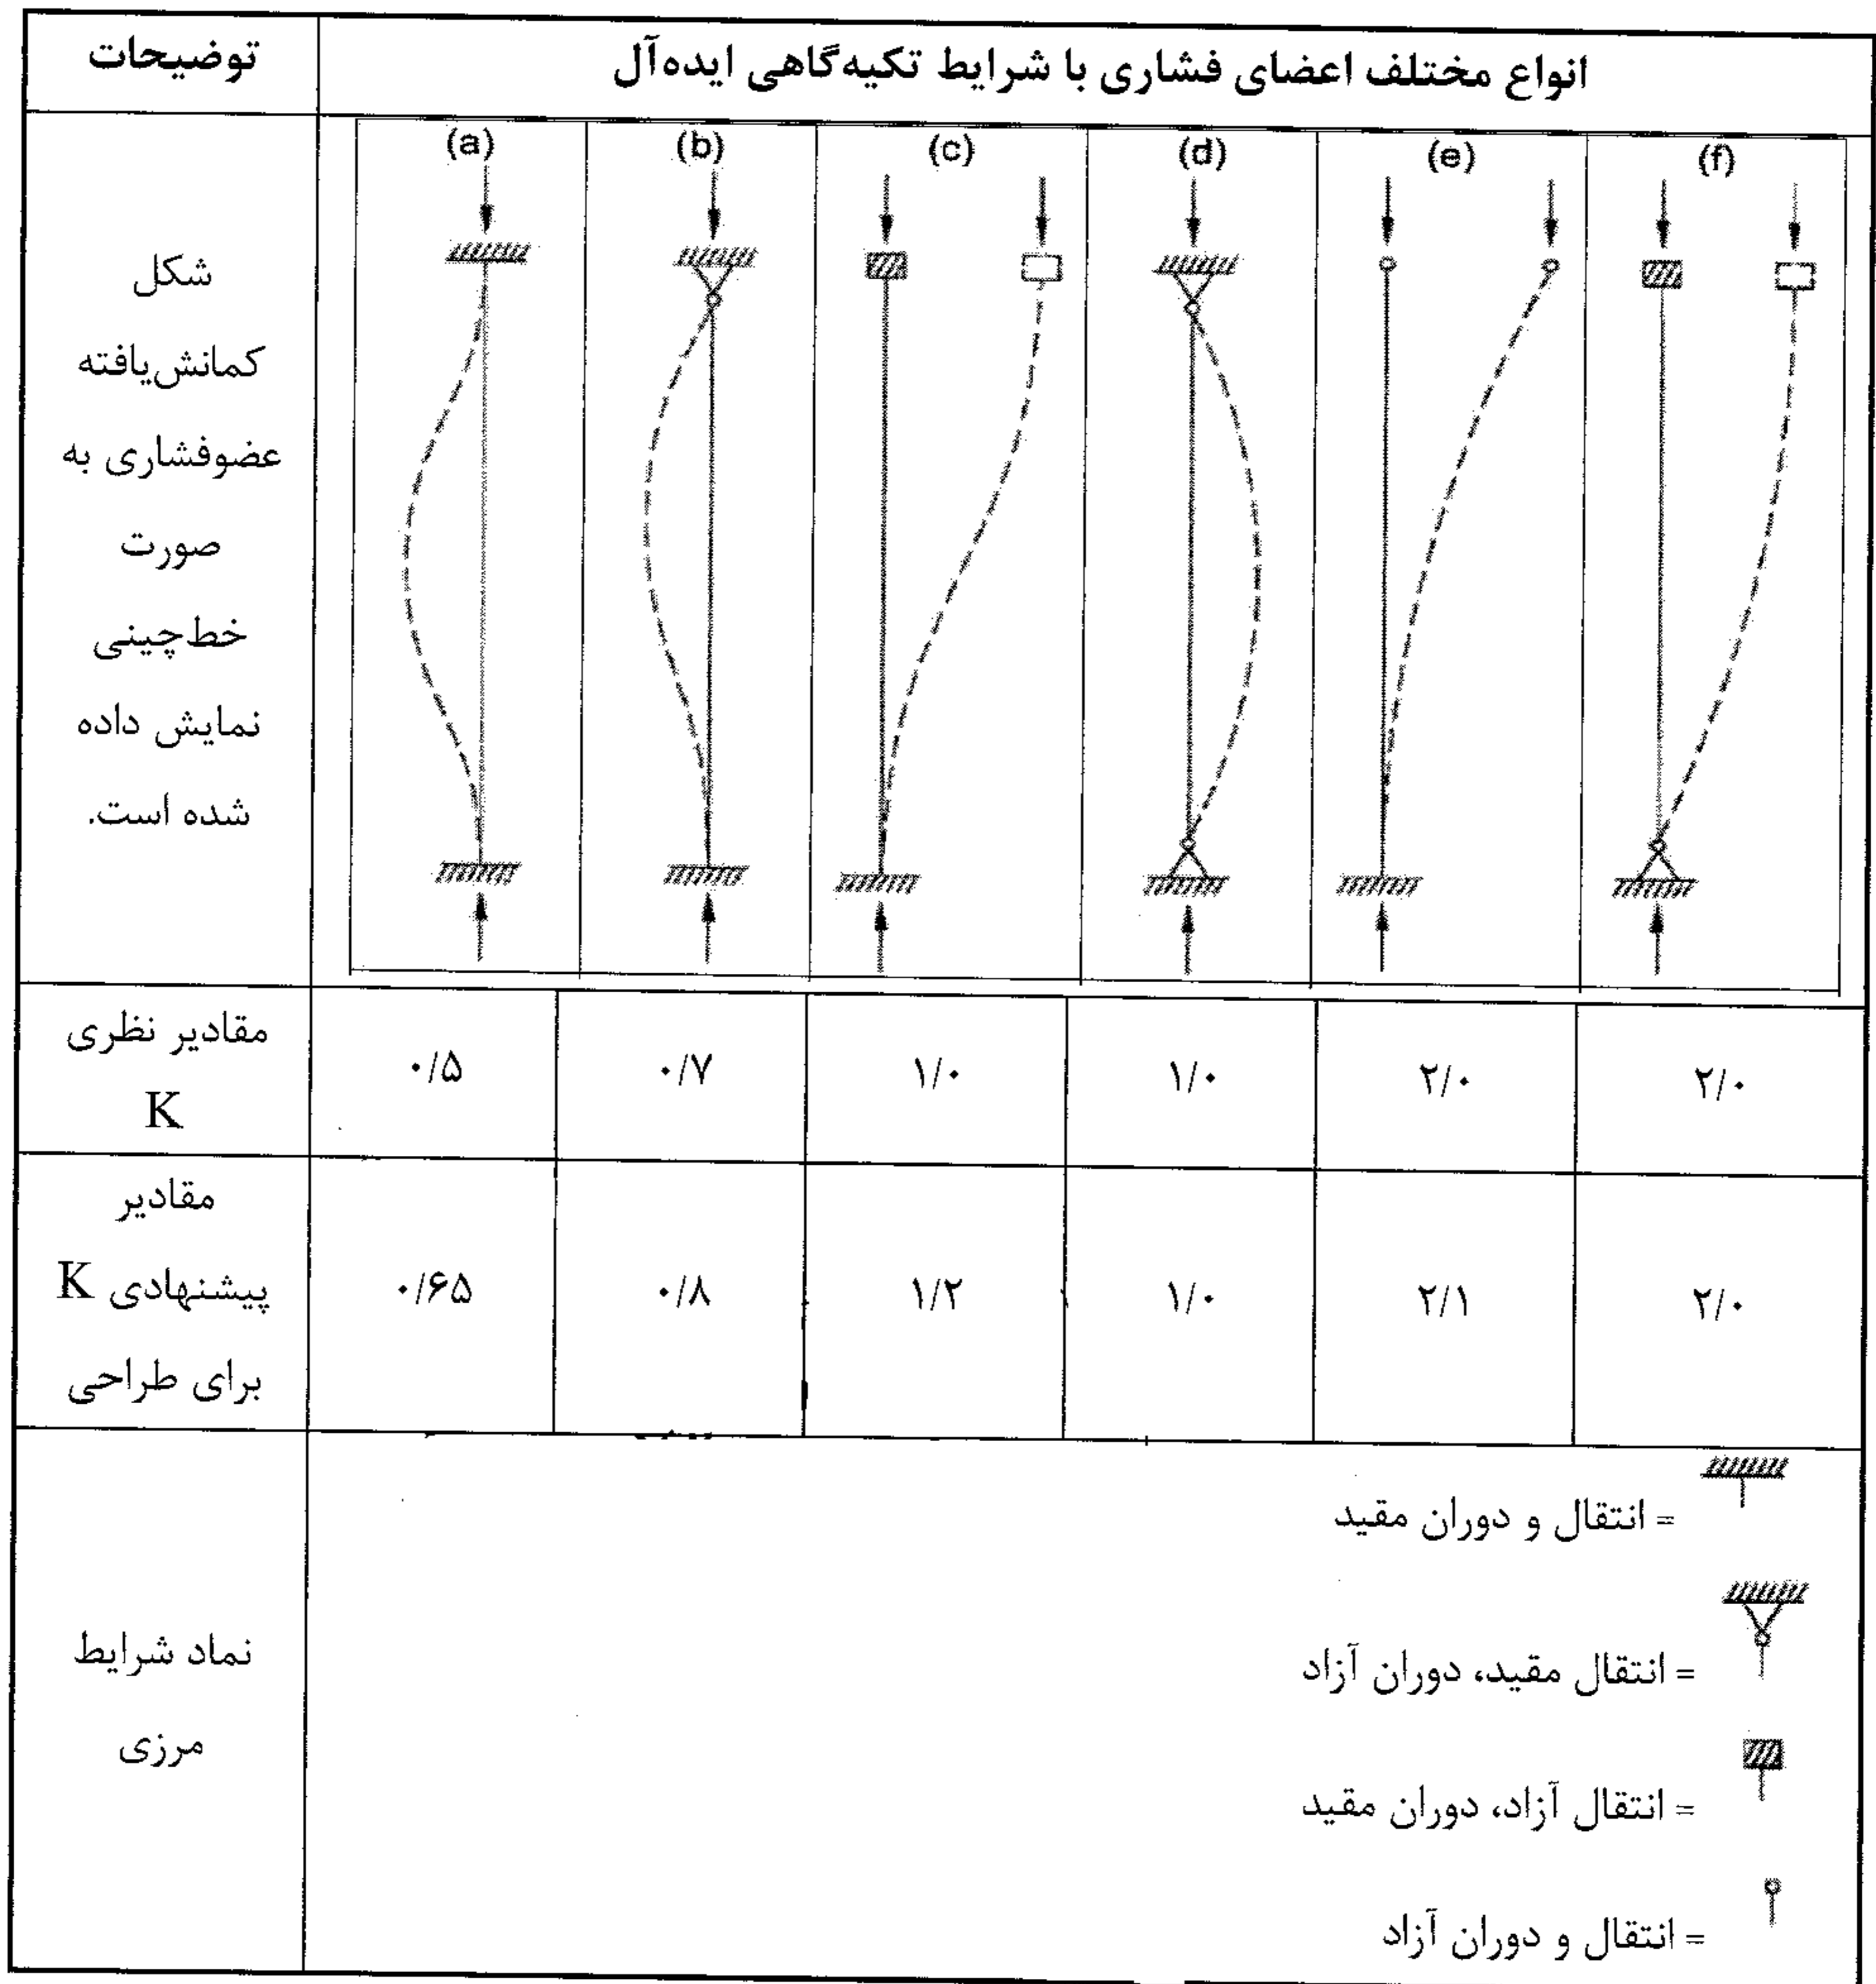 توضیحات
انواع مختلف اعضای فشاری با شرایط تکیه‌گاهی ایده‌آل
شکل
کمانش‌یافته
عضوفشاری به
صورت
خط‌چینی
نمایش داده
شده است.
(a) (b) (c) (d) (e) (f)
مقادیر نظری
K
۰/۵ ۰/۷ ۱/۰ ۱/۰ ۲/۰ ۲/۰
مقادیر
پیشنهادی K
برای طراحی
۰/۶۵ ۰/۸ ۱/۲ ۱/۰ ۲/۱ ۲/۰
نماد شرایط
مرزی
= انتقال و دوران مقید
= انتقال مقید، دوران آزاد
= انتقال آزاد، دوران مقید
= انتقال و دوران آزاد